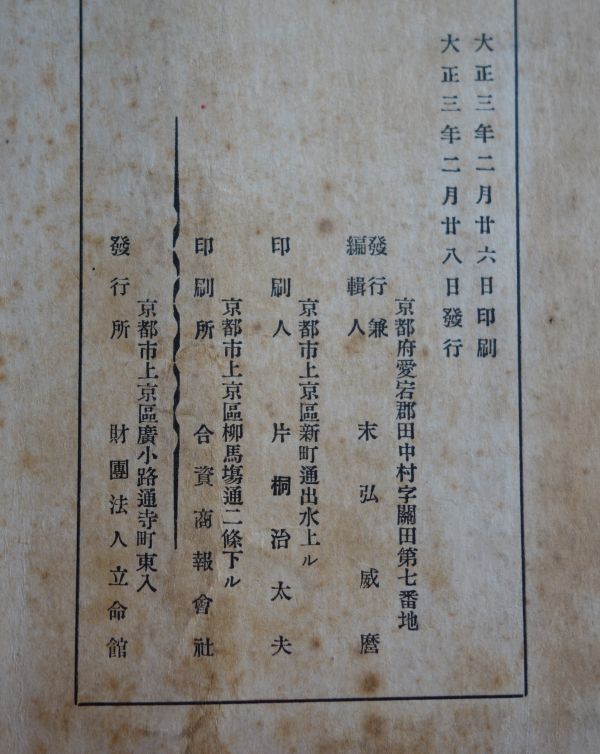 大正三年二月廿六日印刷
大正三年二月廿八日發行
京都府愛宕郡田中村字關田第七番地
發行兼
編輯人 末弘威麿
京都市上京區新町通出水上ル
印刷人 片桐治太夫
京都市上京區柳馬塲通二條下ル
印刷所 合資商報會社
京都市上京區廣小路通寺町東入
發行所 財團法人立命館